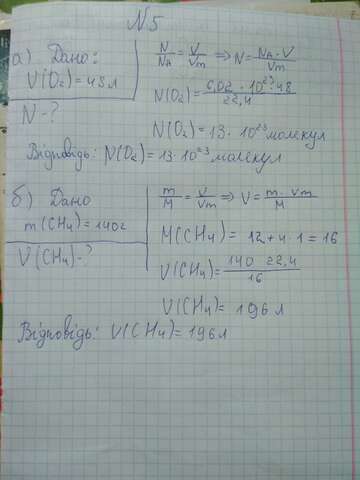 N5
а) Дано:
V(O₂) = 48л
N - ?
N/NA = V/Vm ⇒ N = NA · V/Vm
N(O₂) = 6,02 · 10²³ · 48/22,4
N(O₂) = 13 · 10²³ молекул
Відповідь: N(O₂) = 13 · 10²³ молекул
б) Дано
m(CH₄) = 140г
V(CH₄) - ?
m/M = V/Vm ⇒ V = m · Vm/M
M(CH₄) = 12 + 4 · 1 = 16
V(CH₄) = 140 · 22,4/16
V(CH₄) = 196 л
Відповідь: V(CH₄) = 196л